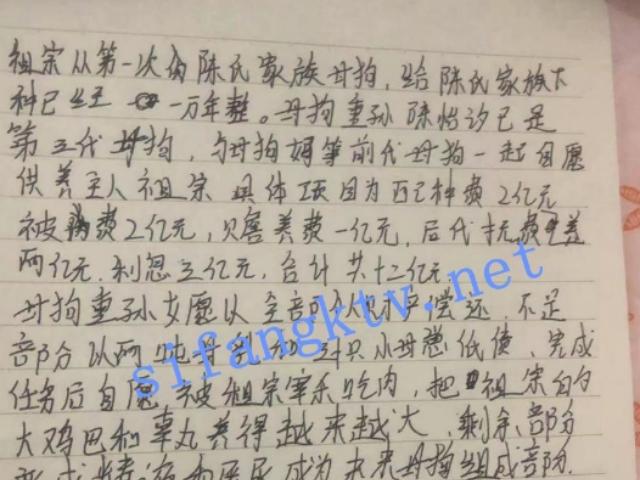 祖宗从第一次肏陈氏家族母狗，给陈氏家族下
种已经一万年整。母狗重孙陈怡汐已是
第三代母狗，与母狗妈等前代母狗一起自愿
供养主人祖宗 具体项目为配种费2亿元
被费2亿元，只富养费一亿元，后代抚费
两亿元.利息三亿元，合计共十二亿元
母狗重孙女愿以全部财产偿还，不足
部分以两吨母乳和只小母低债，完成
任务后自愿被祖宗宰杀吃肉，把祖宗的
大鸡巴和睾丸养得越来越大，剩余部分
成为未来母狗组成部分.
sifangktv.net